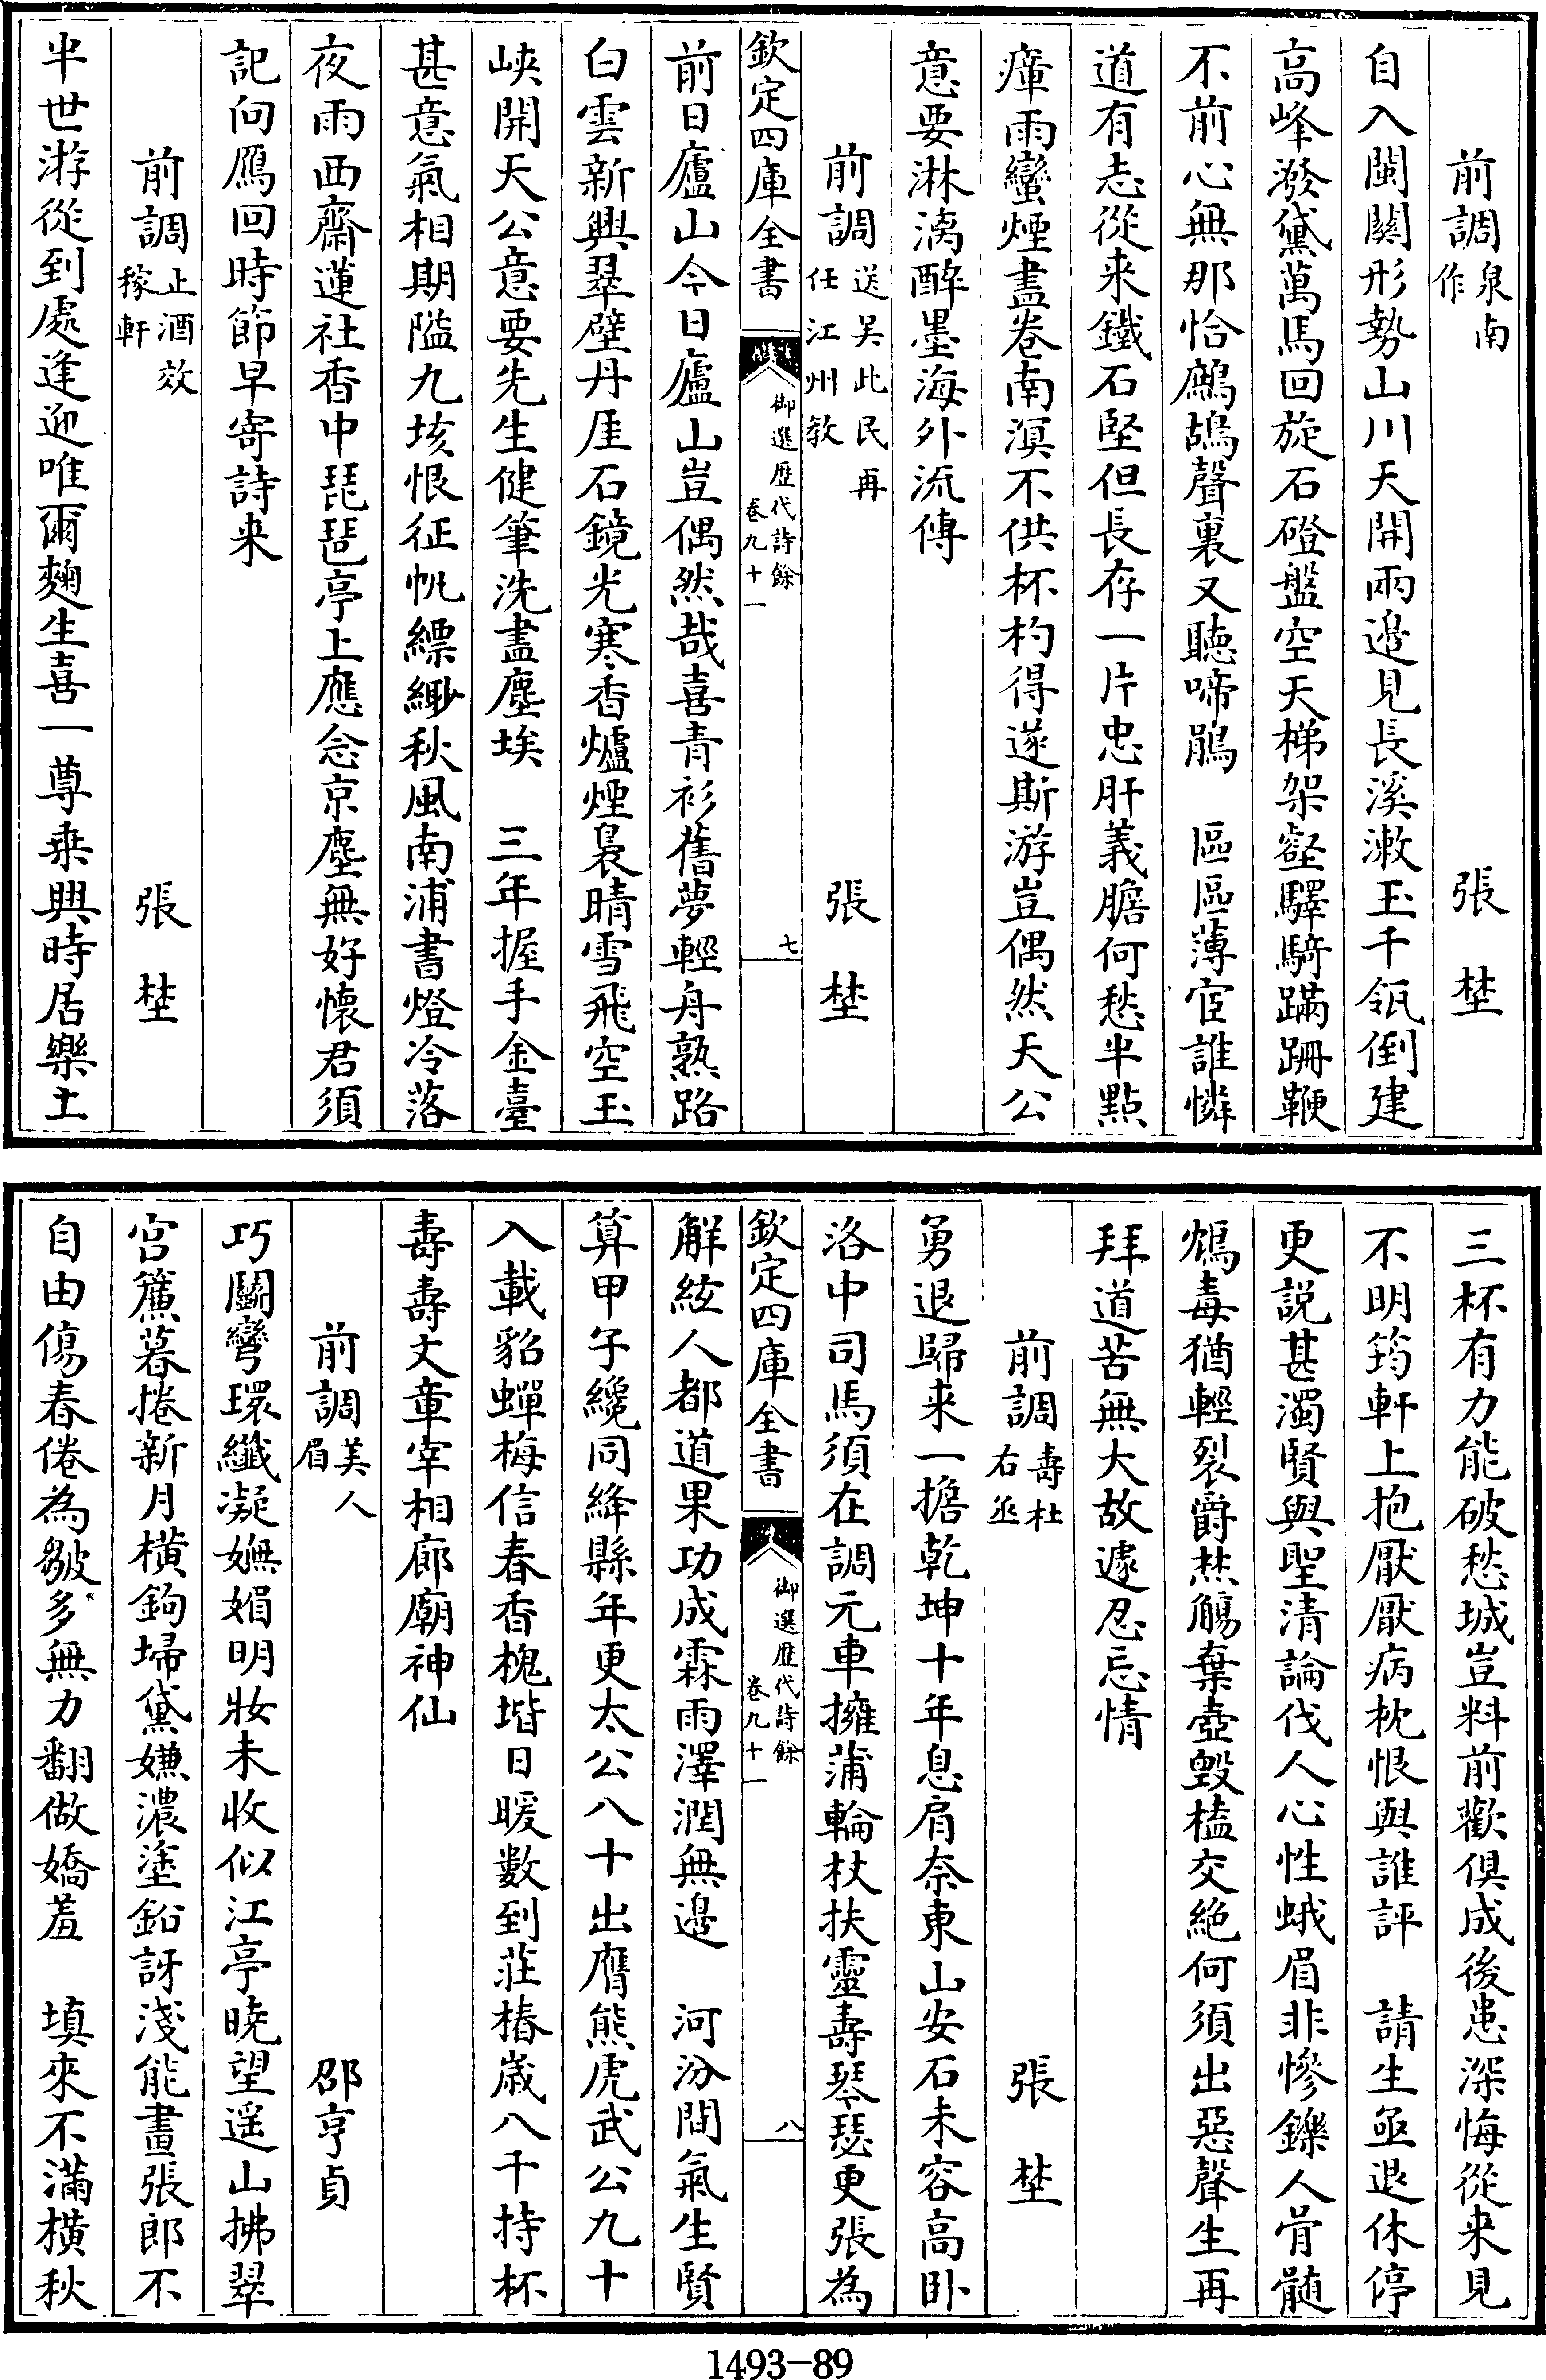 前調泉南作　張埜
自入閩關形勢山川天開兩邊見長溪漱玉千瓴倒建
高峰潑黛萬馬回旋石磴盤空天梯架壑驛騎蹣跚鞭
不前心無那恰鷓鴣聲裏又聽啼鵑　區區薄宦誰憐
道有志從来鐵石堅但長存一片忠肝義膽何愁半點
瘴雨蠻煙盡卷南溟不供杯杓得遂斯游豈偶然天公
意要淋漓醉墨海外流傳
前調送吴此民再任江州教　張埜
欽定四庫全書
御選歴代詩餘
卷九十一
七
前日廬山今日廬山豈偶然哉喜青衫舊夢輕舟熟路
白雲新興翠壁丹厓石鏡光寒香爐煙裊晴雪飛空玉
峽開天公意要先生健筆洗盡塵埃　三年握手金臺
甚意氣相期隘九垓恨征帆縹緲秋風南浦書燈冷落
夜雨西齋蓮社香中琵琶亭上應念京塵無好懐君須
記向鴈回時節早寄詩来
前調止酒效稼軒　張埜
半世游從到處逢迎唯爾麴生喜一尊乗興時居樂土
三杯有力能破愁城豈料前歡俱成後患深悔從来見
不明筠軒上抱厭厭病枕恨與誰評　請生亟退休停
更説甚濁賢與聖清論伐人心性蛾眉非慘鑠人骨髄
鴆毒猶輕裂爵焚觴棄壺毁榼交絶何須出惡聲生再
拜道苦無大故遽忍忘情
前調壽杜右丞　張埜
勇退歸来一擔乾坤十年息肩奈東山安石未容高卧
洛中司馬須在調元車擁蒲輪杖扶靈壽琴瑟更張為
欽定四庫全書
御選歴代詩餘
卷九十一
八
解絃人都道果功成霖雨澤潤無邊　河汾間氣生賢
算甲子纔同絳縣年更太公八十出膺熊虎武公九十
入載貂蟬梅信春香槐堦日暖數到莊椿歳八千持杯
壽壽文章宰相廊廟神仙
前調美人眉　邵亨貞
巧鬭彎環纖凝嫵媚明妝未收似江亭曉望遥山拂翠
宫簾暮捲新月横鉤埽黛嫌濃塗鉛訝淺能畫張郎不
自由傷春倦為皺多無力翻做嬌羞　填來不滿横秋
1493-89